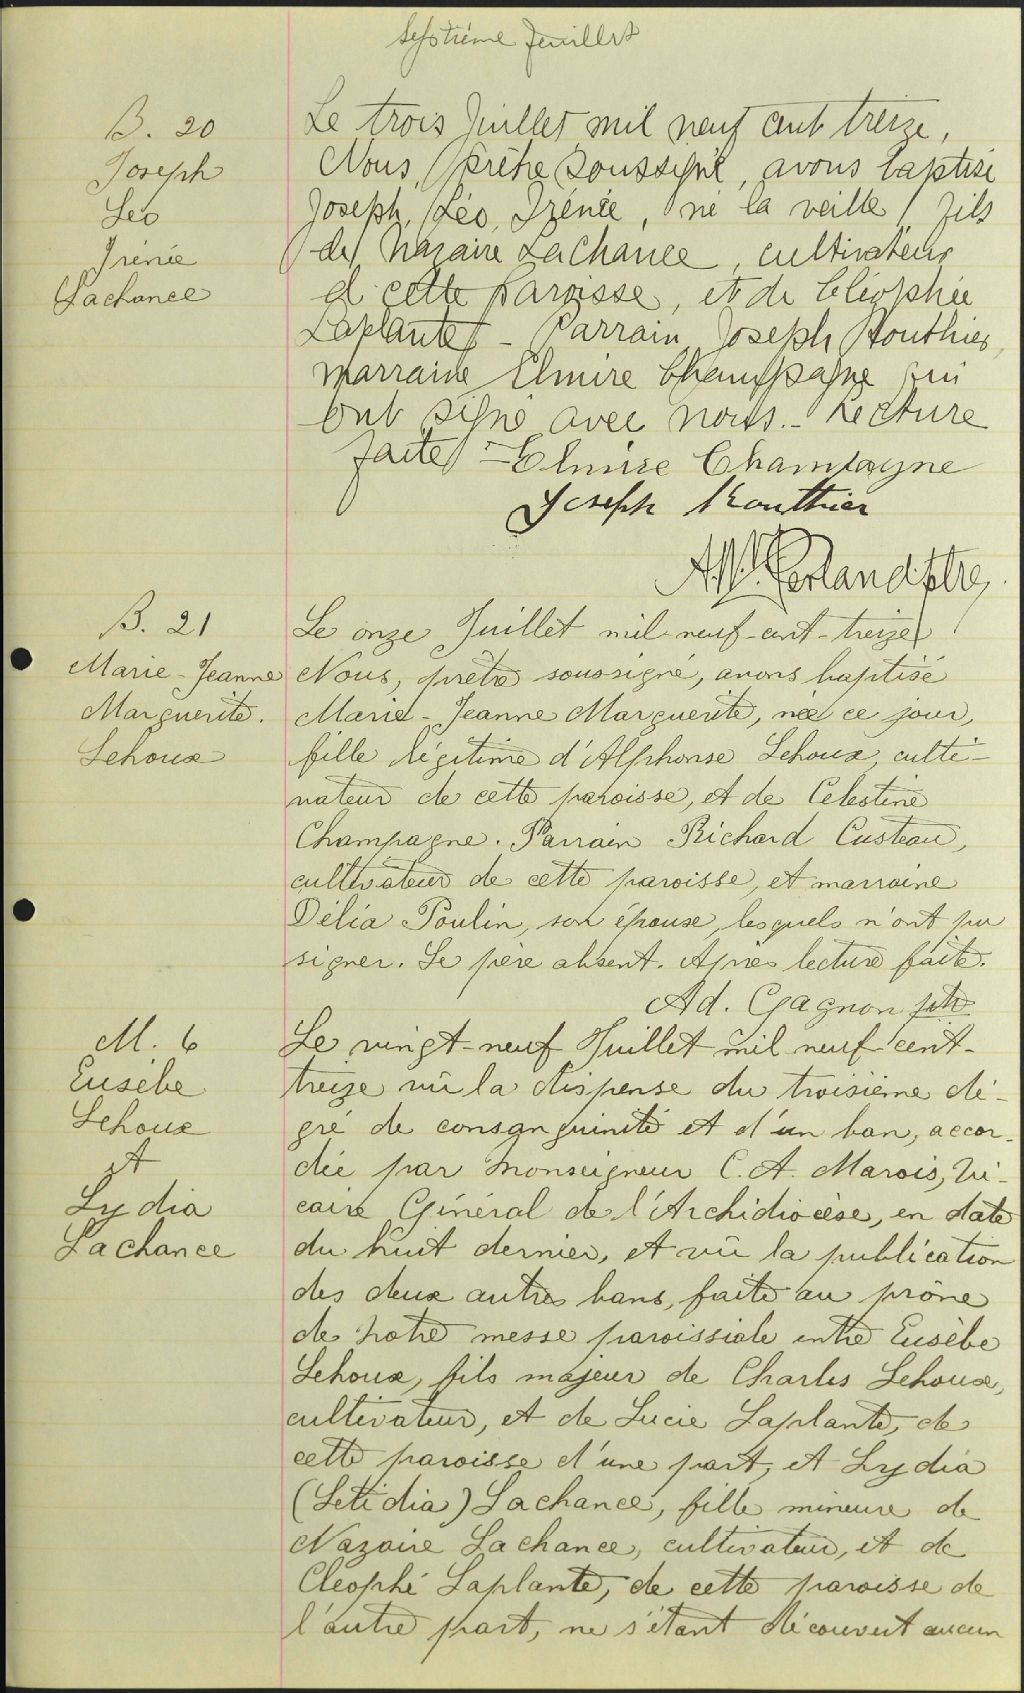 Septième feuillet
B. 20
Joseph
Léo
Irénée
Lachance
Le trois Juillet mil neuf cent treize,
Nous, prêtre soussigné, avons baptisé
Joseph, Léo, Irénée, né la veille, fils
de Nazaire Lachance, cultivateur
d cette paroisse, et de Cléophée
Laplante - Parrain Joseph Routhier,
marraine Elmire Champagne qui
ont signé avec nous. - Lecture
faite - Elmire Champagne
Joseph Routhier
ptre
B. 21
Marie-Jeanne
Marguerite.
Lehoux
Le onze Juillet mil-neuf-cent-treize
Nous, prêtre soussigné, avons baptisé
Marie-Jeanne Marguerite, née ce jour,
fille légitime d'Alphonse Lehoux, culti-
vateur de cette paroisse, et de Célestine
Champagne. Parrain Richard Custeau,
cultivateur de cette paroisse, et marraine
Délia Poulin, son épouse, lesquels n'ont pu
signer. Le père absent. Après lecture faite.
Ad. Gagnon ptr
M. 6
Eusèbe
Lehoux
et
Lydia
Lachance
Le vingt-neuf Juillet mil neuf cent-
treize vû la dispense du troisième dé-
gré de consanguinité et d'un ban, accor-
dée par Monseigneur C. A. Marois, Vi-
caire Général de l'Archidiocèse, en date
du huit dernier, et vû la publication
des deux autres bans, faite au prône
de notre messe paroissiale entre Eusèbe
Lehoux, fils majeur de Charles Lehoux,
cultivateur, et de Lucie Laplante, de
cette paroisse d'une part, et Lydia
(Letidia) Lachance, fille mineure de
Nazaire Lachance, cultivateur, et de
Cléophé Laplante, de cette paroisse de
l'autre part, ne s'étant découvert aucun